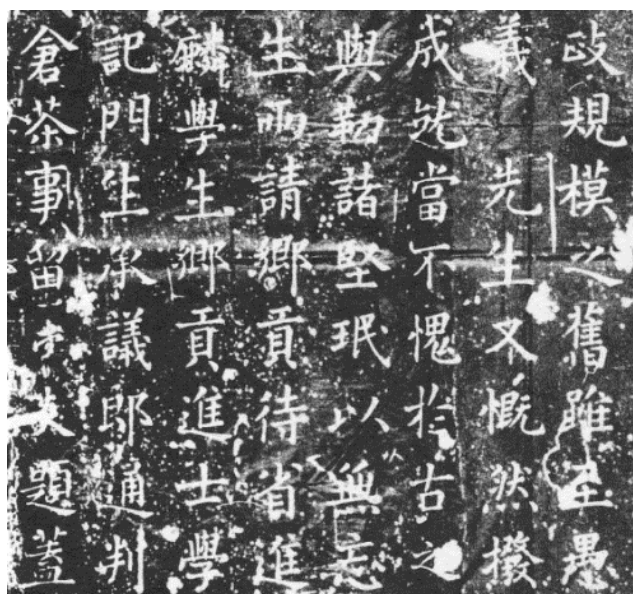 改規模之舊雖至愚
義先生又慨然撥
成就當不愧於古之
與勒諸堅珉以無忘
生兩請鄉貢待省進
麟學生鄉貢進士學
記門生承議郎通判
倉茶事留夫題蓋